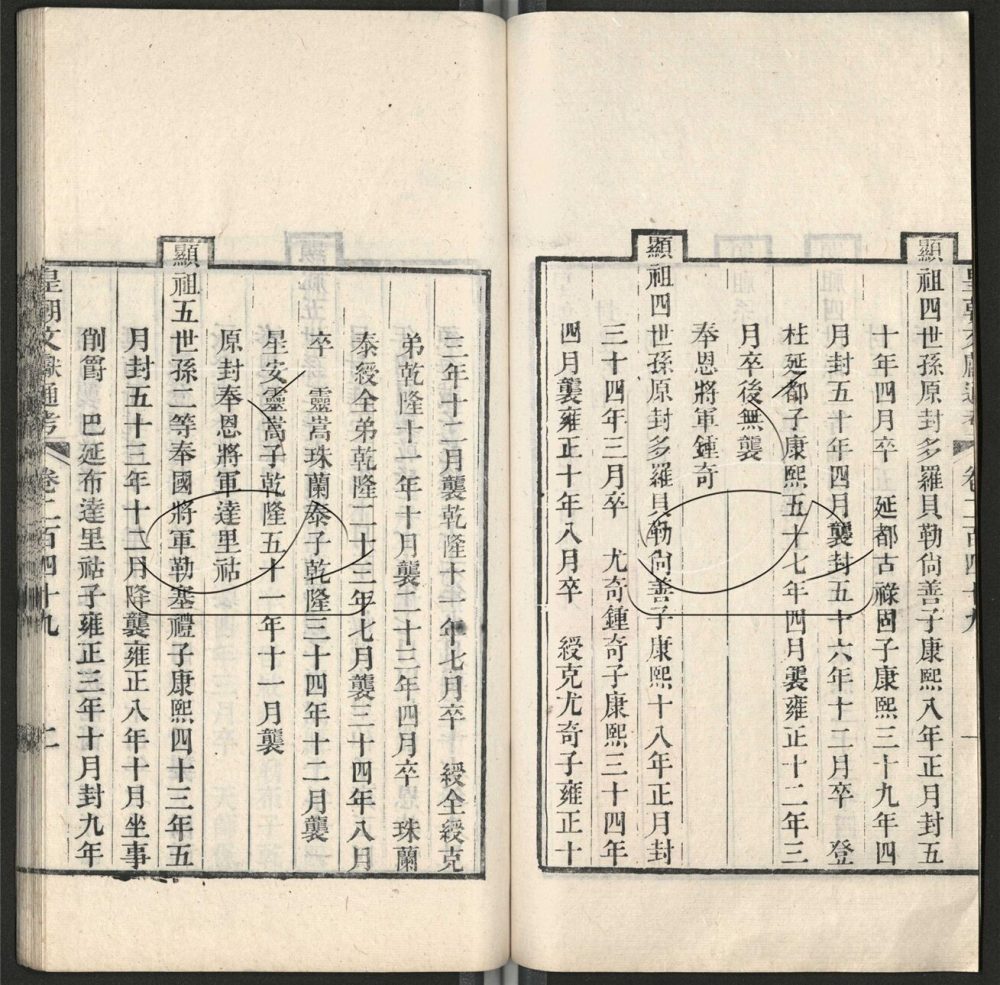 顯祖四世孫原封多羅貝勒尙善子康熙八年正月封五
十年四月卒　延都古祿固子康熙三十九年四
月封五十年四月襲封五十六年十二月卒　登
柱延都子康熙五十七年四月襲雍正十二年三
月卒後無襲
奉恩將軍鍾奇
顯祖四世孫原封多羅貝勒尙善子康熙十八年正月封
三十四年三月卒　尤奇鍾奇子康熙三十四年
四月襲雍正十年八月卒　綬克尤奇子雍正十
三年十二月襲乾隆十一年七月卒　綬全綬克
弟乾隆十一年十月襲二十三年四月卒　珠蘭
泰綬全弟乾隆二十三年七月襲三十四年八月
卒　靈嵩珠蘭泰子乾隆三十四年十二月襲
星安靈嵩子乾隆五十一年十一月襲
原封奉恩將軍達里祜
顯祖五世孫二等奉國將軍勒塞禮子康熙四十三年五
月封五十三年十二月降襲雍正八年十月坐事
削爵　巴延布達里祜子雍正三年十月封九年
皇朝文獻通考　卷二百四十九